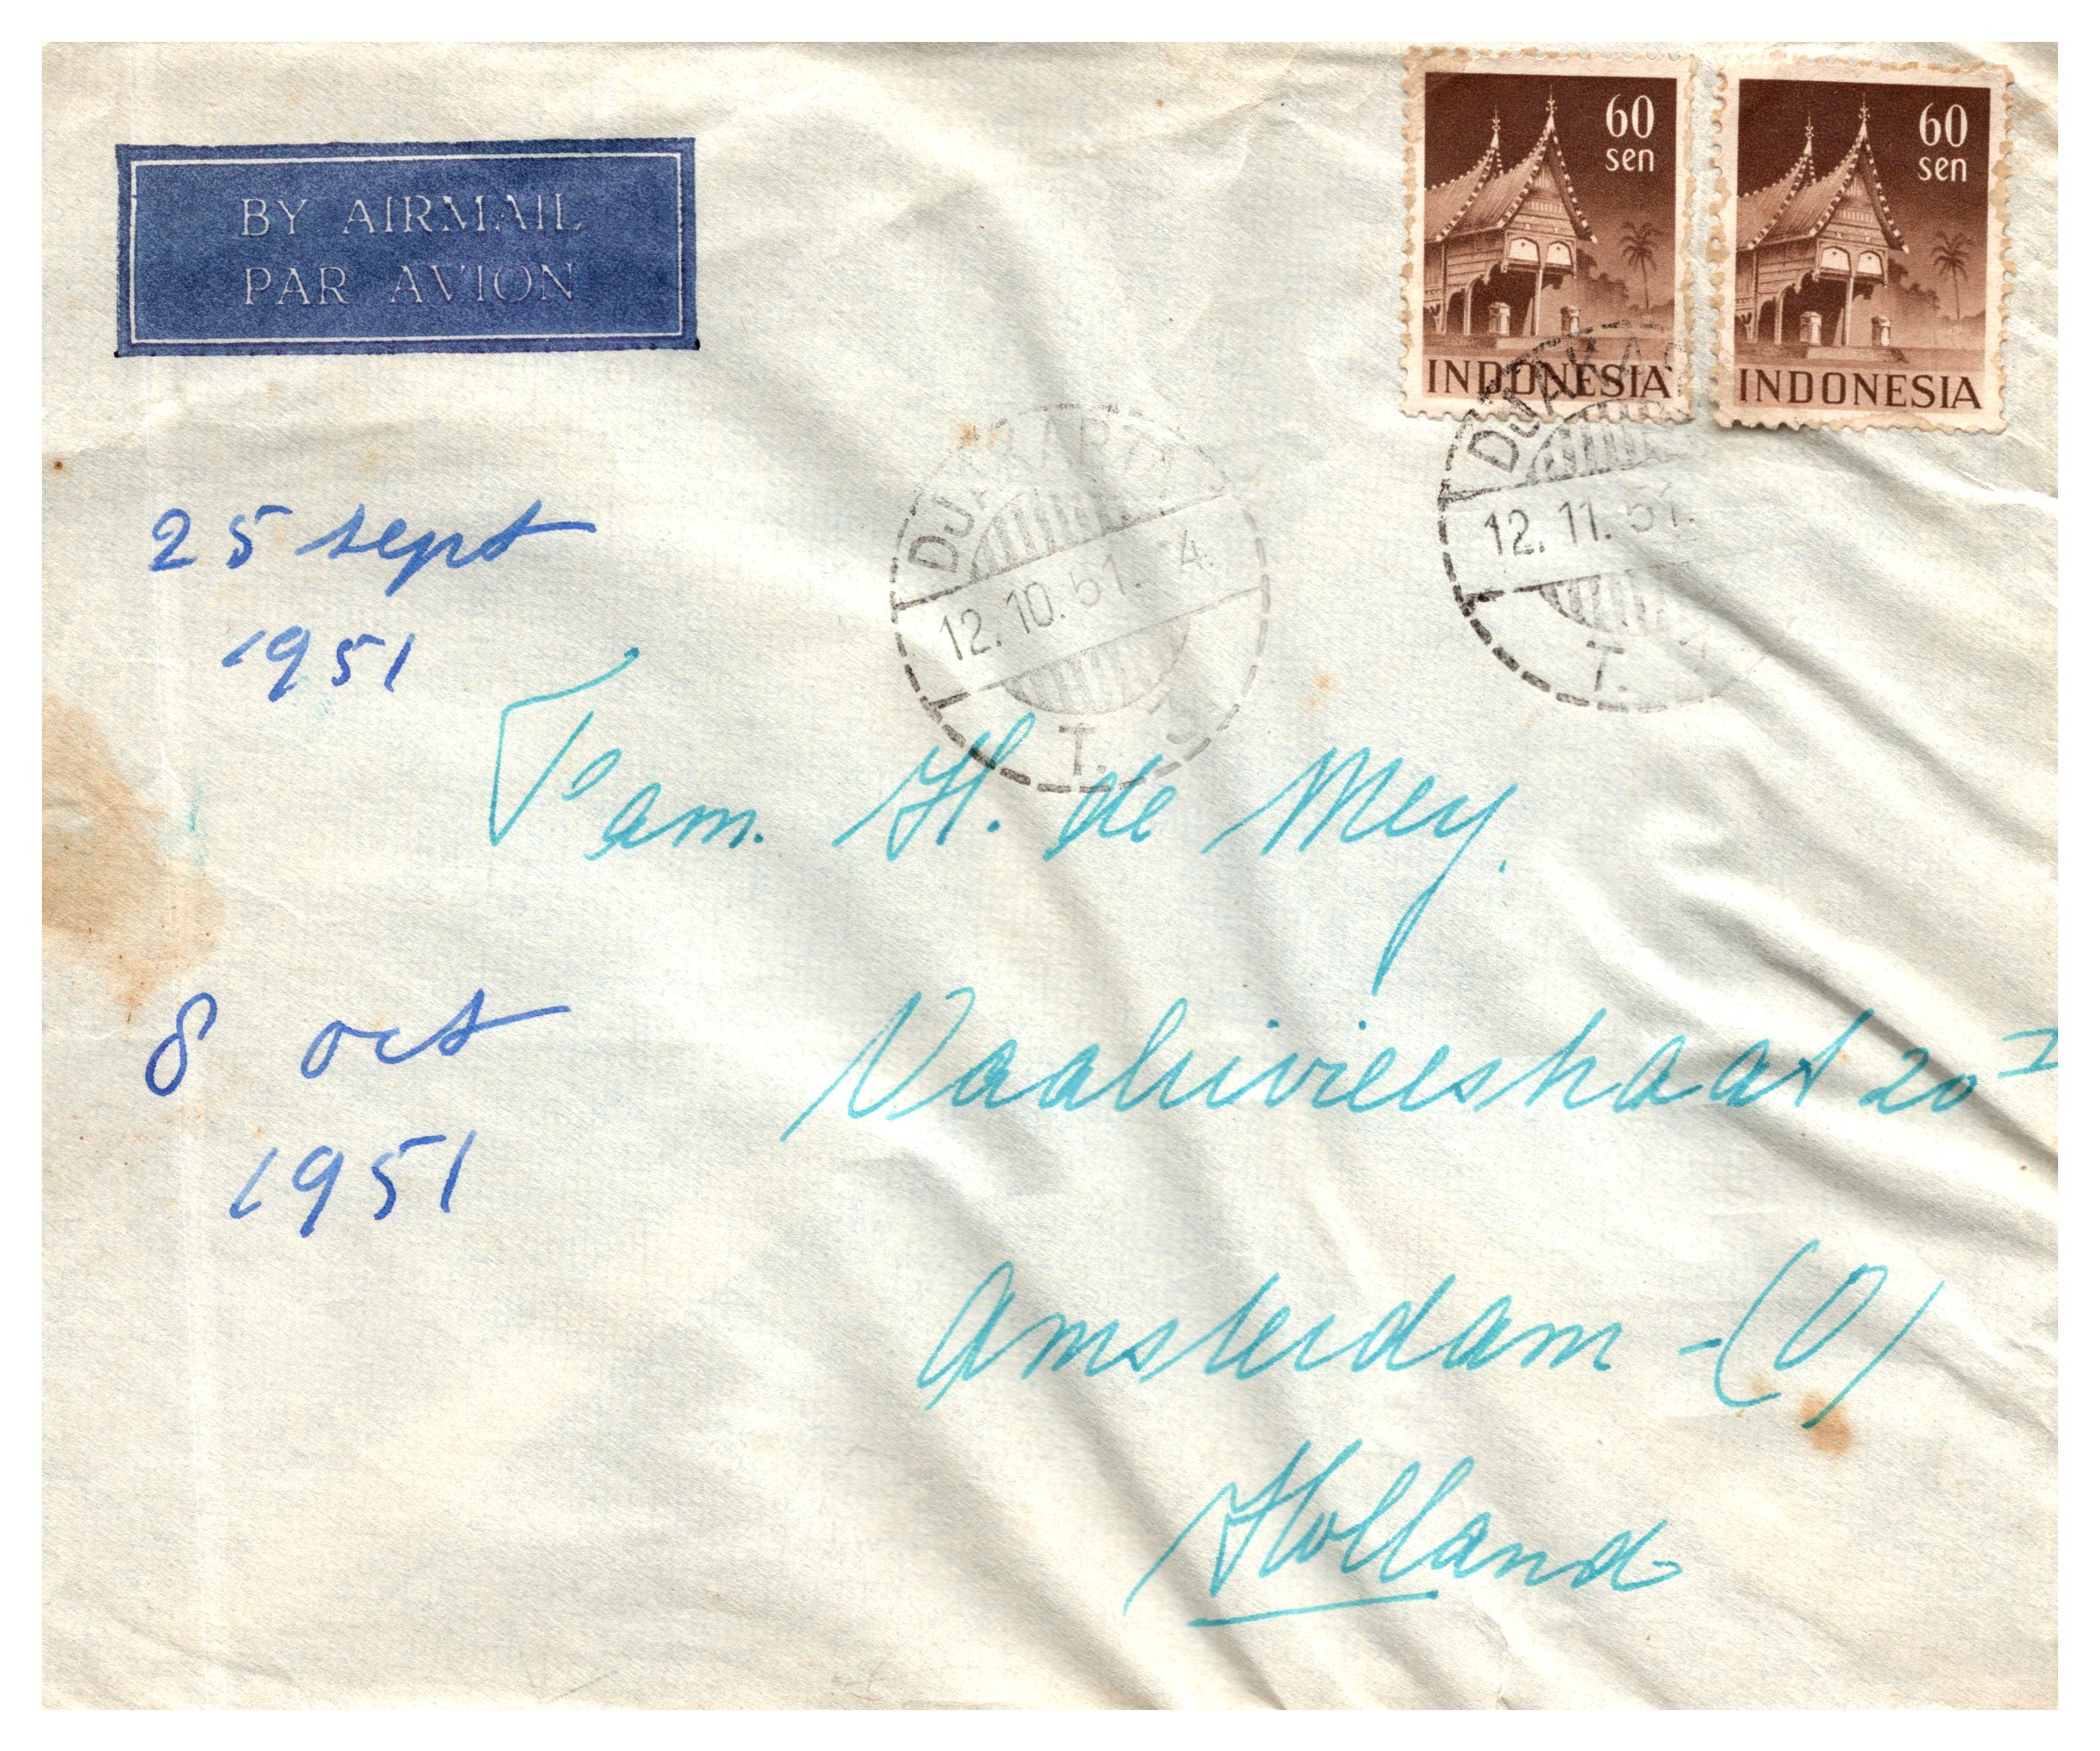 BY AIRMAIL
PAR AVION
60
sen
INDONESIA
60
sen
INDONESIA
DJAKARTA
12.10.51. 4.
T.
DJAKA
12.11.51.
T.
25 sept
1951
Fam. H. de Mey.
Vaalrivierstraat 20 I
8 oct
1951
Amsterdam - (O)
Holland